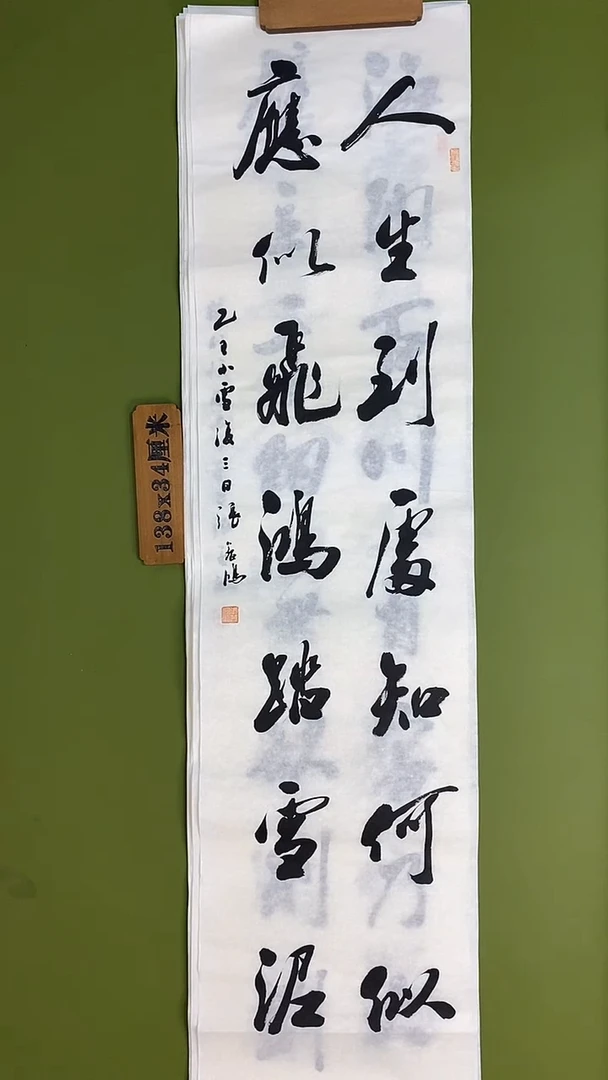 人生到處知何似
應似飛鴻踏雪泥
乙巳小雪後三日張
138x34厘米